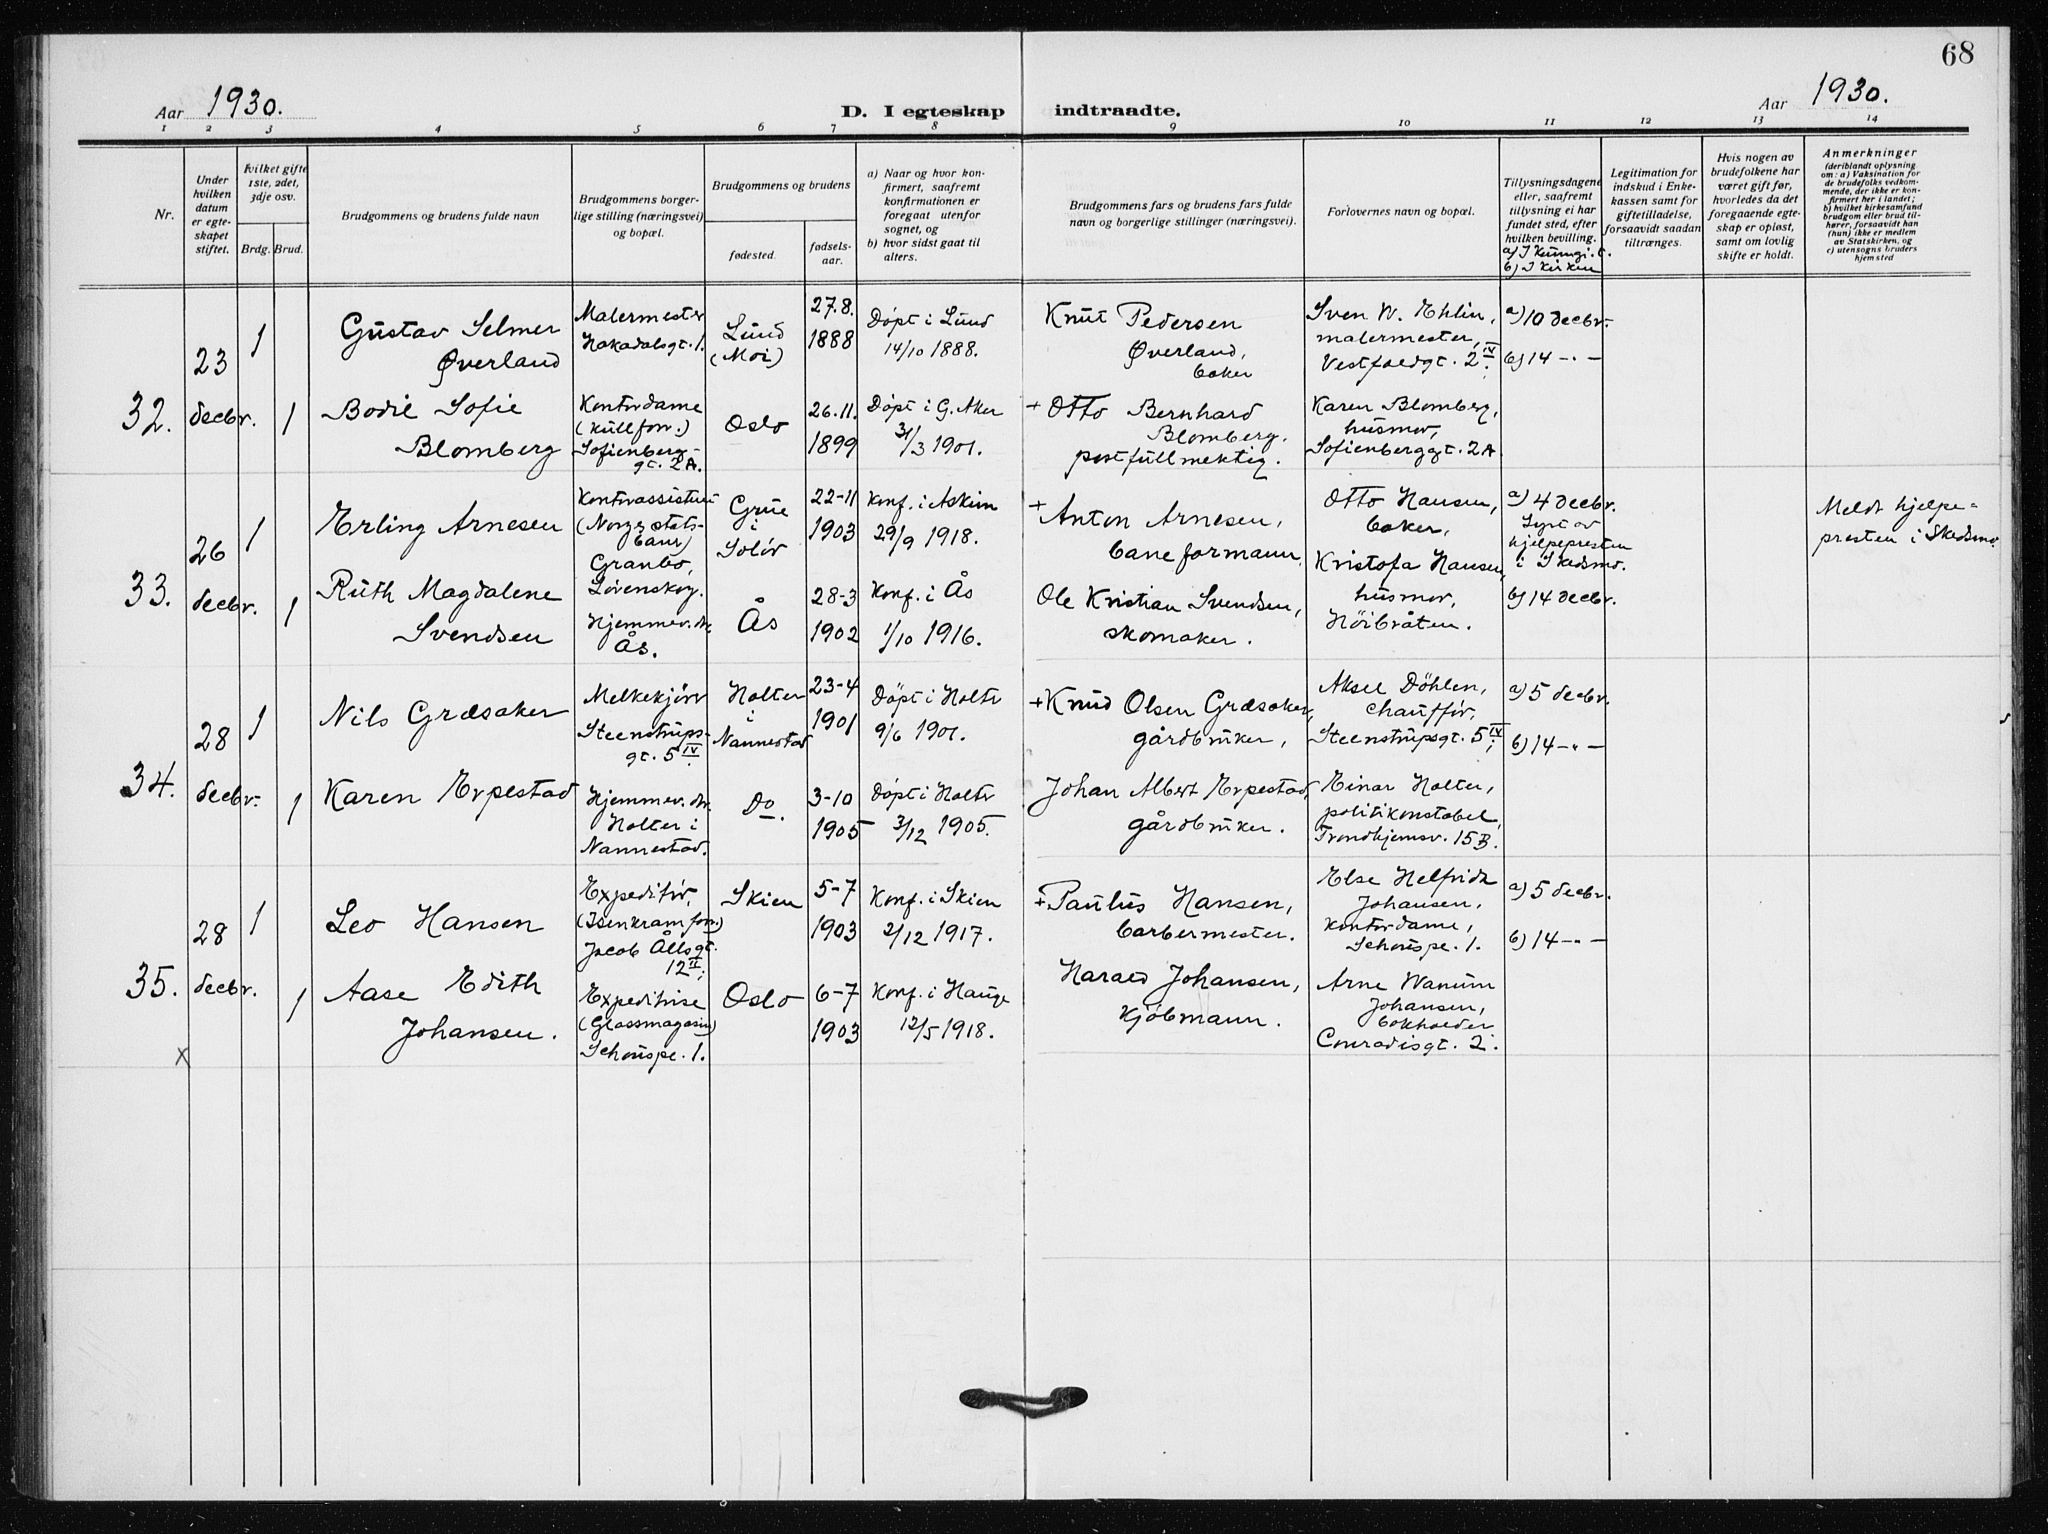 68
Aar 1930.
D. I egteskap indtraadte.
Aar 1930.
1 2 3 4 5 6 7 8 9 10 11 12 13 14
Nr.
Under
hvilken
datum
er egte-
skapet
stiftet.
Hvilket gifte
1ste, 2det,
3dje osv.
Brdg. Brud.
Brudgommens og brudens fulde navn
Brudgommens borger-
lige stilling (næringsvei)
og bopæl.
Brudgommens og brudens
fødested.
fødsels-
aar.
a) Naar og hvor kon-
firmert, saafremt
konfirmationen er
foregaat utenfor
sognet, og
b) hvor sidst gaat til
alters.
Brudgommens fars og brudens fars fulde
navn og borgerlige stillinger (næringsvei).
Forlovernes navn og bopæl.
Tillysningsdagene
eller, saafremt
tillysning ei har
fundet sted, efter
hvilken bevilling.
a) I Kunngi.t.
b) I kirken
Legitimation for
indskud i Enke-
kassen samt for
giftetilladelse,
forsaavidt saadan
tiltrænges.
Hvis nogen av
brudefolkene har
været gift før,
hvorledes da det
foregaaende egte-
skap er opløst,
samt om lovlig
skifte er holdt.
Anmerkninger
(deriblandt oplysning
om: a) Vaksination for
de brudefolks vedkom-
mende, der ikke er kon-
firmert her i landet;
b) hvilket kirkesamfund
brudgom eller brud til-
hører, forsaavidt han
(hun) ikke er medlem
av Statskirken, og
c) utensogns bruders
hjemsted
32.
23
decbr.
1
Gustav Selmer
Øverland
Malermester
Hakadalsgt. 1.
Lund
(Moi)
27.8.
1888
Döpt i Lund
14/10 1888.
Knut Pedersen
Øverland,
baker
Sven W. Ehlin,
malermester,
Vestfoldgt. 2 IV;
a) 10 decbr.
b) 14 -"-
1
Bodil Sofie
Blomberg
Kontordame
(kullforr.)
Sofienberg-
gt. 2A.
Oslo
26.11.
1899
Döpt i G. Aker
31/3 1901.
+ Otto Bernhard
Blomberg.
postfullmektig.
Karen Blomberg,
husmor,
Sofienberggt. 2A
33.
26
decbr.
1
Erling Arnesen
Kontorassistent
(Norges stats-
baner)
Granbo,
Lörenskog.
Grue
i
Solör
22-11
1903
Konf. i Askim
29/9 1918.
+ Anton Arnesen,
baneformann.
Otto Hansen,
baker,
Kristofa Hansen,
husmor,
Höibråten.
a) 4 decbr.
Lyst av
hjelpepresten
i Skedsmo.
b) 14 decbr.
Meldt hjelpe-
presten i Skedsmo.
1
Ruth Magdalene
Svendsen
Hjemmev. dr.
Ås.
Ås
28-3
1902
Konf. i Ås
1/10 1916.
Ole Kristian Svendsen,
skomaker.
34.
28
decbr.
1
Nils Græsaker
Melkekjörer
Steenstrups-
gt. 5 IV
Holter
i
Nannestad
23-4
1901
Döpt i Holter
9/6 1901.
+ Knud Olsen Græsaker,
gårdbruker,
Aksel Döhlen,
chaufför,
Steenstrupsgt. 5 IV;
a) 5 decbr.
b) 14 -"-
1
Karen Erpestad
Hjemmev. dr.
Holter i
Nannestad.
Do.
3-10
1905
Döpt i Holter
3/12 1905.
Johan Albert Erpestad,
gårdbruker.
Einar Holter,
politikonstabel,
Trondhjemsv. 15B.
35.
28
decbr.
1
Leo Hansen
Expeditör,
(Isenkramforr.)
Jacob Ållsgt.
12 II;
Skien
5-7
1903
Konf. i Skien
2/12 1917.
+ Paulus Hansen,
barbermester.
Else Helfrid
Johansen,
kontordame,
Schouspl. 1.
a) 5 decbr.
b) 14 -"-
1
Aase Edith
Johansen.
Expeditrise
(Glassmagasin)
Schouspl. 1.
Oslo
6-7
1903
Konf. i Hauge
12/5 1918.
Harald Johansen,
kjöbmann.
Arne Wanum
Johansen,
bokholder
Conradisgt. 2.
x